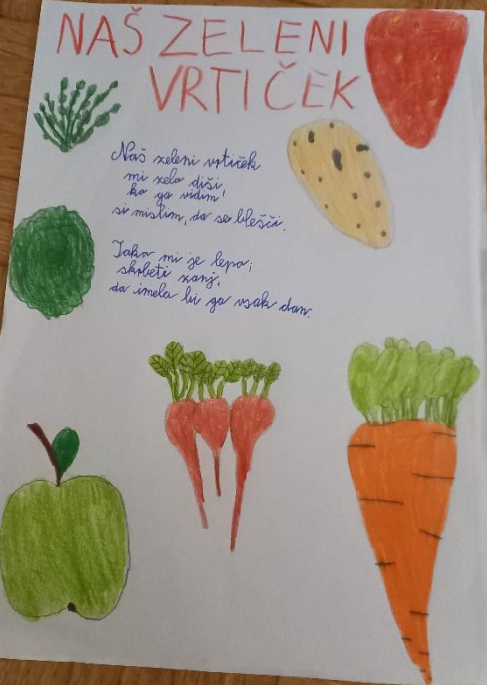 NAŠ ZELENI
VRTIČEK
Naš zeleni vrtiček
mi zelo diši
ko ga vidim,
si mislim, da se blešči.
Tako mi je lepo,
skrbeti zanj,
da imela bi ga vsak dan.